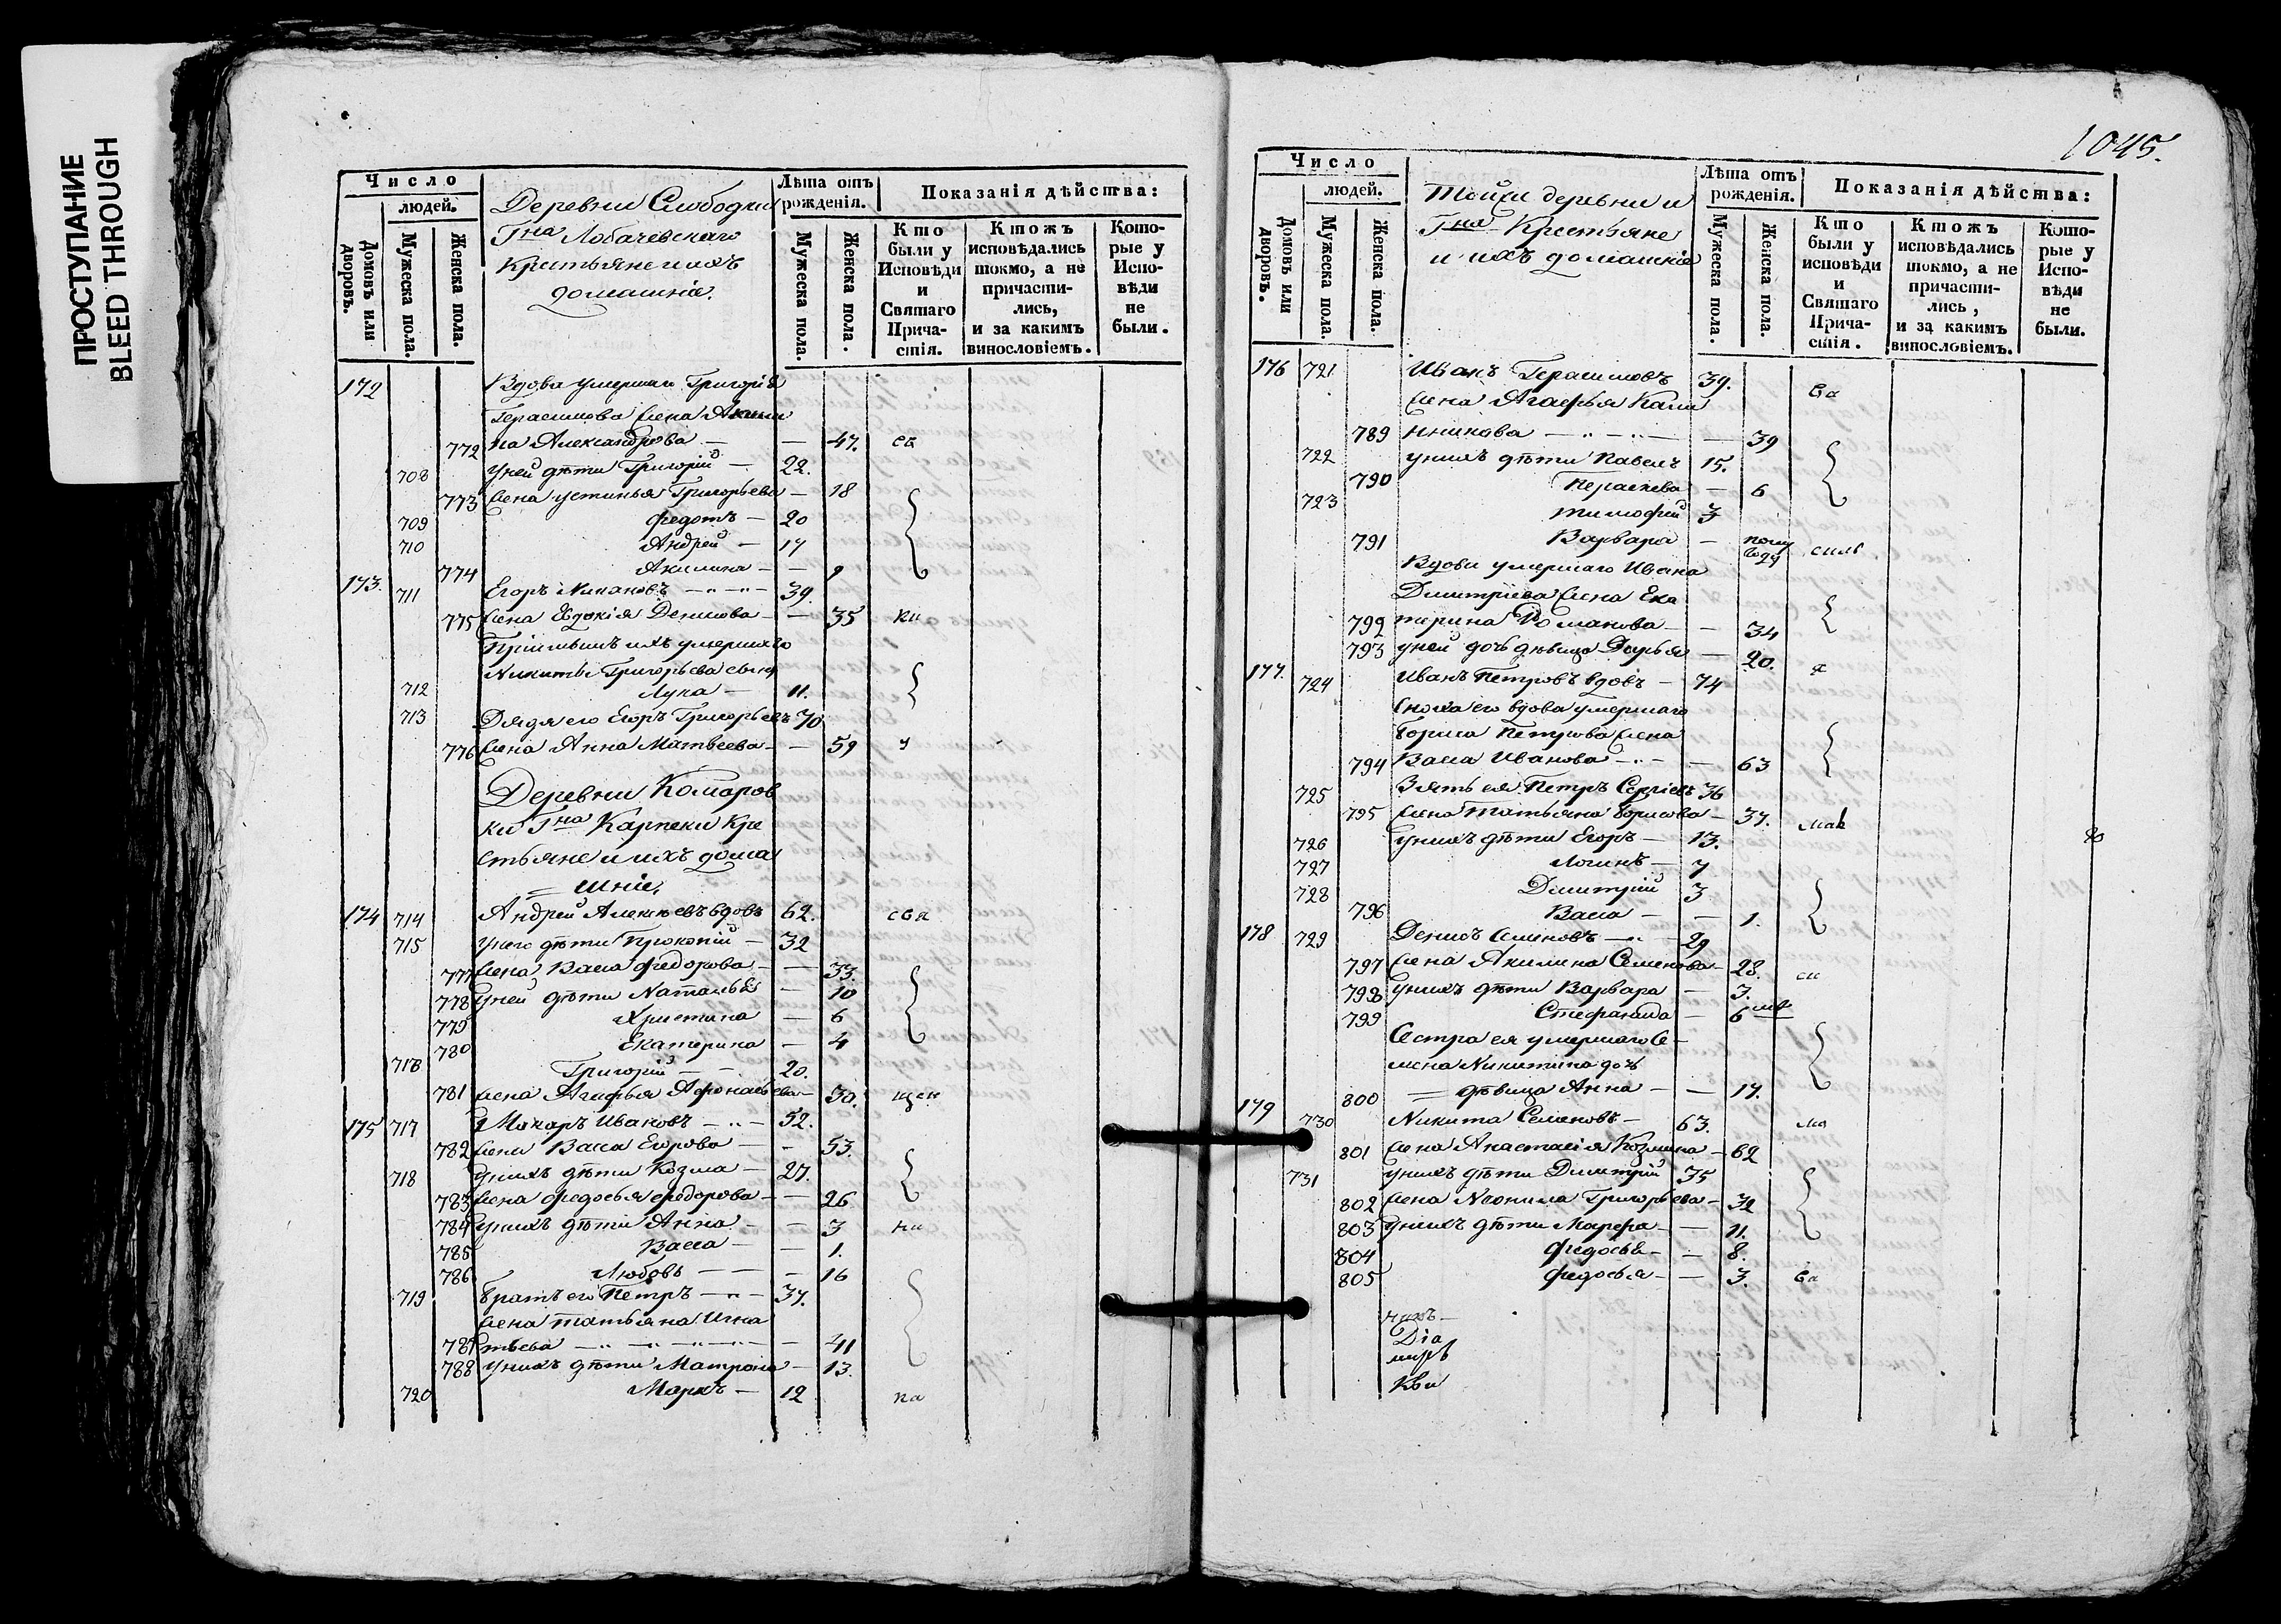 ПРОСТУПАНИЕ
BLEED THROUGH
Число
людей.
Домовъ или дворовъ.
Мужеска пола.
Женска пола.
Деревни Слободки
Гна Лобачевскаго
Крестьяне и ихъ
домашніе.
Лѣта отъ рожденія.
Мужеска пола.
Женска пола.
Показанія дѣйства:
Кто были у Исповѣди и Святаго Причастія.
Ктожъ исповѣдались токмо, а не причастились, и за какимъ винословіемъ.
Которые у Исповѣди не были.
172 Вдова умершаго Григорія
Герасимова жена Акили
772 на Александрова — — 47. св
708 у ней дѣти Григорій — 22.
773 жена Устинья Григорьева — 18
709 Федотъ — 20
710 Андрей — 17
774 Акилина — — 9
173. 711 Егоръ Никановъ — 39.
775 жена Евдокія Денисова — — 35 ни
Пріимышъ ихъ умершаго
Никиты Григорьева сынъ
712 Лука — 11.
713 Дядя его Егоръ Григорьевъ 70
776 жена Анна Матвеева — — 59 у
Деревни Комаров
ки Гна Карпеки Кре
стьяне и ихъ дома
= шніе.
174 714 Андрей Алексеевъ вдовъ 62. сва
715 у него дѣти Прокопій — 32
777 жена Васса Федорова — — 33.
778 у ней дѣти Наталья — 10
779 Христина — 6
780 Екатерина — 4
716 Григорій — — 20.
781 жена Агафья Афонасьева — 30. щен
175 717 Макаръ Ивановъ — 52.
782 жена Васса Егорова — — 53.
718 у нихъ дѣти Козма — 27.
783 жена Федосья Федорова — — 26
784 у нихъ дѣти Анна — — 3 ни
785 Васса — — 1.
786 Любовь — — — 16
719 Братъ его Петръ — 37.
жена Татьяна Игна
787 тьева — — 41
788 у нихъ дѣти Матрона — 13.
720 Маркъ — 12 ка
1045.
Число
людей.
Домовъ или дворовъ.
Мужеска пола.
Женска пола.
Тойже деревни и
Гна Крестьяне
и ихъ домашніе
Лѣта отъ рожденія.
Мужеска пола.
Женска пола.
Показанія дѣйства:
Кто были у исповѣди и Святаго Причастія.
Ктожъ исповѣдались токмо, а не причастились, и за какимъ винословіемъ.
Которые у Исповѣди не были.
176 721 Иванъ Герасимовъ 39. Ва
жена Агафья Кали
789 нникова — — 39
722 у нихъ дѣти Павелъ 15.
790 Пераскева — 6
723 Тимофей 3
791 Варвара — полу года силь
Вдова умершаго Ивана
Димитріева жена Ека
792 терина Романова — — 34
793 у ней дочь дѣвица Дарья — 20. я
177. 724 Иванъ Петровъ вдовъ — 74
Сноха его вдова умершаго
Бориса Петрова жена
794 Васса Иванова — — 63
725 Зять ея Петръ Сергіевъ 36
795 жена Татьяна Борисова — 37. Мак
726 у нихъ дѣти Егоръ — 13.
727 Логинъ — 7
728 Димитрій 3
796 Васса — — 1.
178 729 Денисъ Семеновъ — 29
797 жена Акилина Семенова — 28. си
798 у нихъ дѣти Варвара — 3.
799 Стефанида — 6 мѣ
Сестра ея умершаго Се-
мена Никитина дочь
800 = дѣвица Анна — — 17.
179 730 Никита Семеновъ — 63. мо
801 жена Анастасія Козмина — 62
731 у нихъ дѣти Димитрій 35
802 жена Неонила Григорьева — 32
803 у нихъ дѣти Марфа — — 11.
804 Федосья — — 8.
805 Федосья — — 3. Ва
Діа
Кви